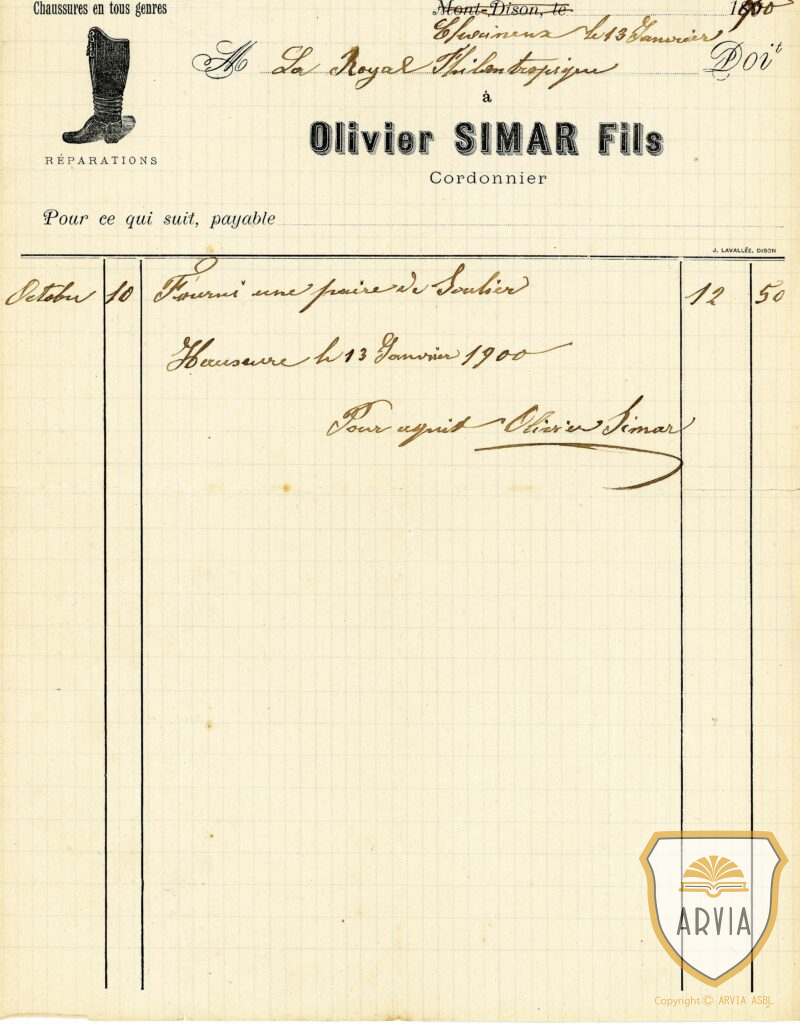 Chaussures en tous genres
Mont-Dison, le 1900
le 13 Janvier
M La Royal Philantropique Doit
à
Olivier SIMAR Fils
Cordonnier
RÉPARATIONS
Pour ce qui suit, payable
J. LAVALLÉE, DISON
Octobre 10 Fourni une paire de Soulier 12 50
le 13 Janvier 1900
Pour aquit Olivier Simar
ARVIA
Copyright © ARVIA ASBL